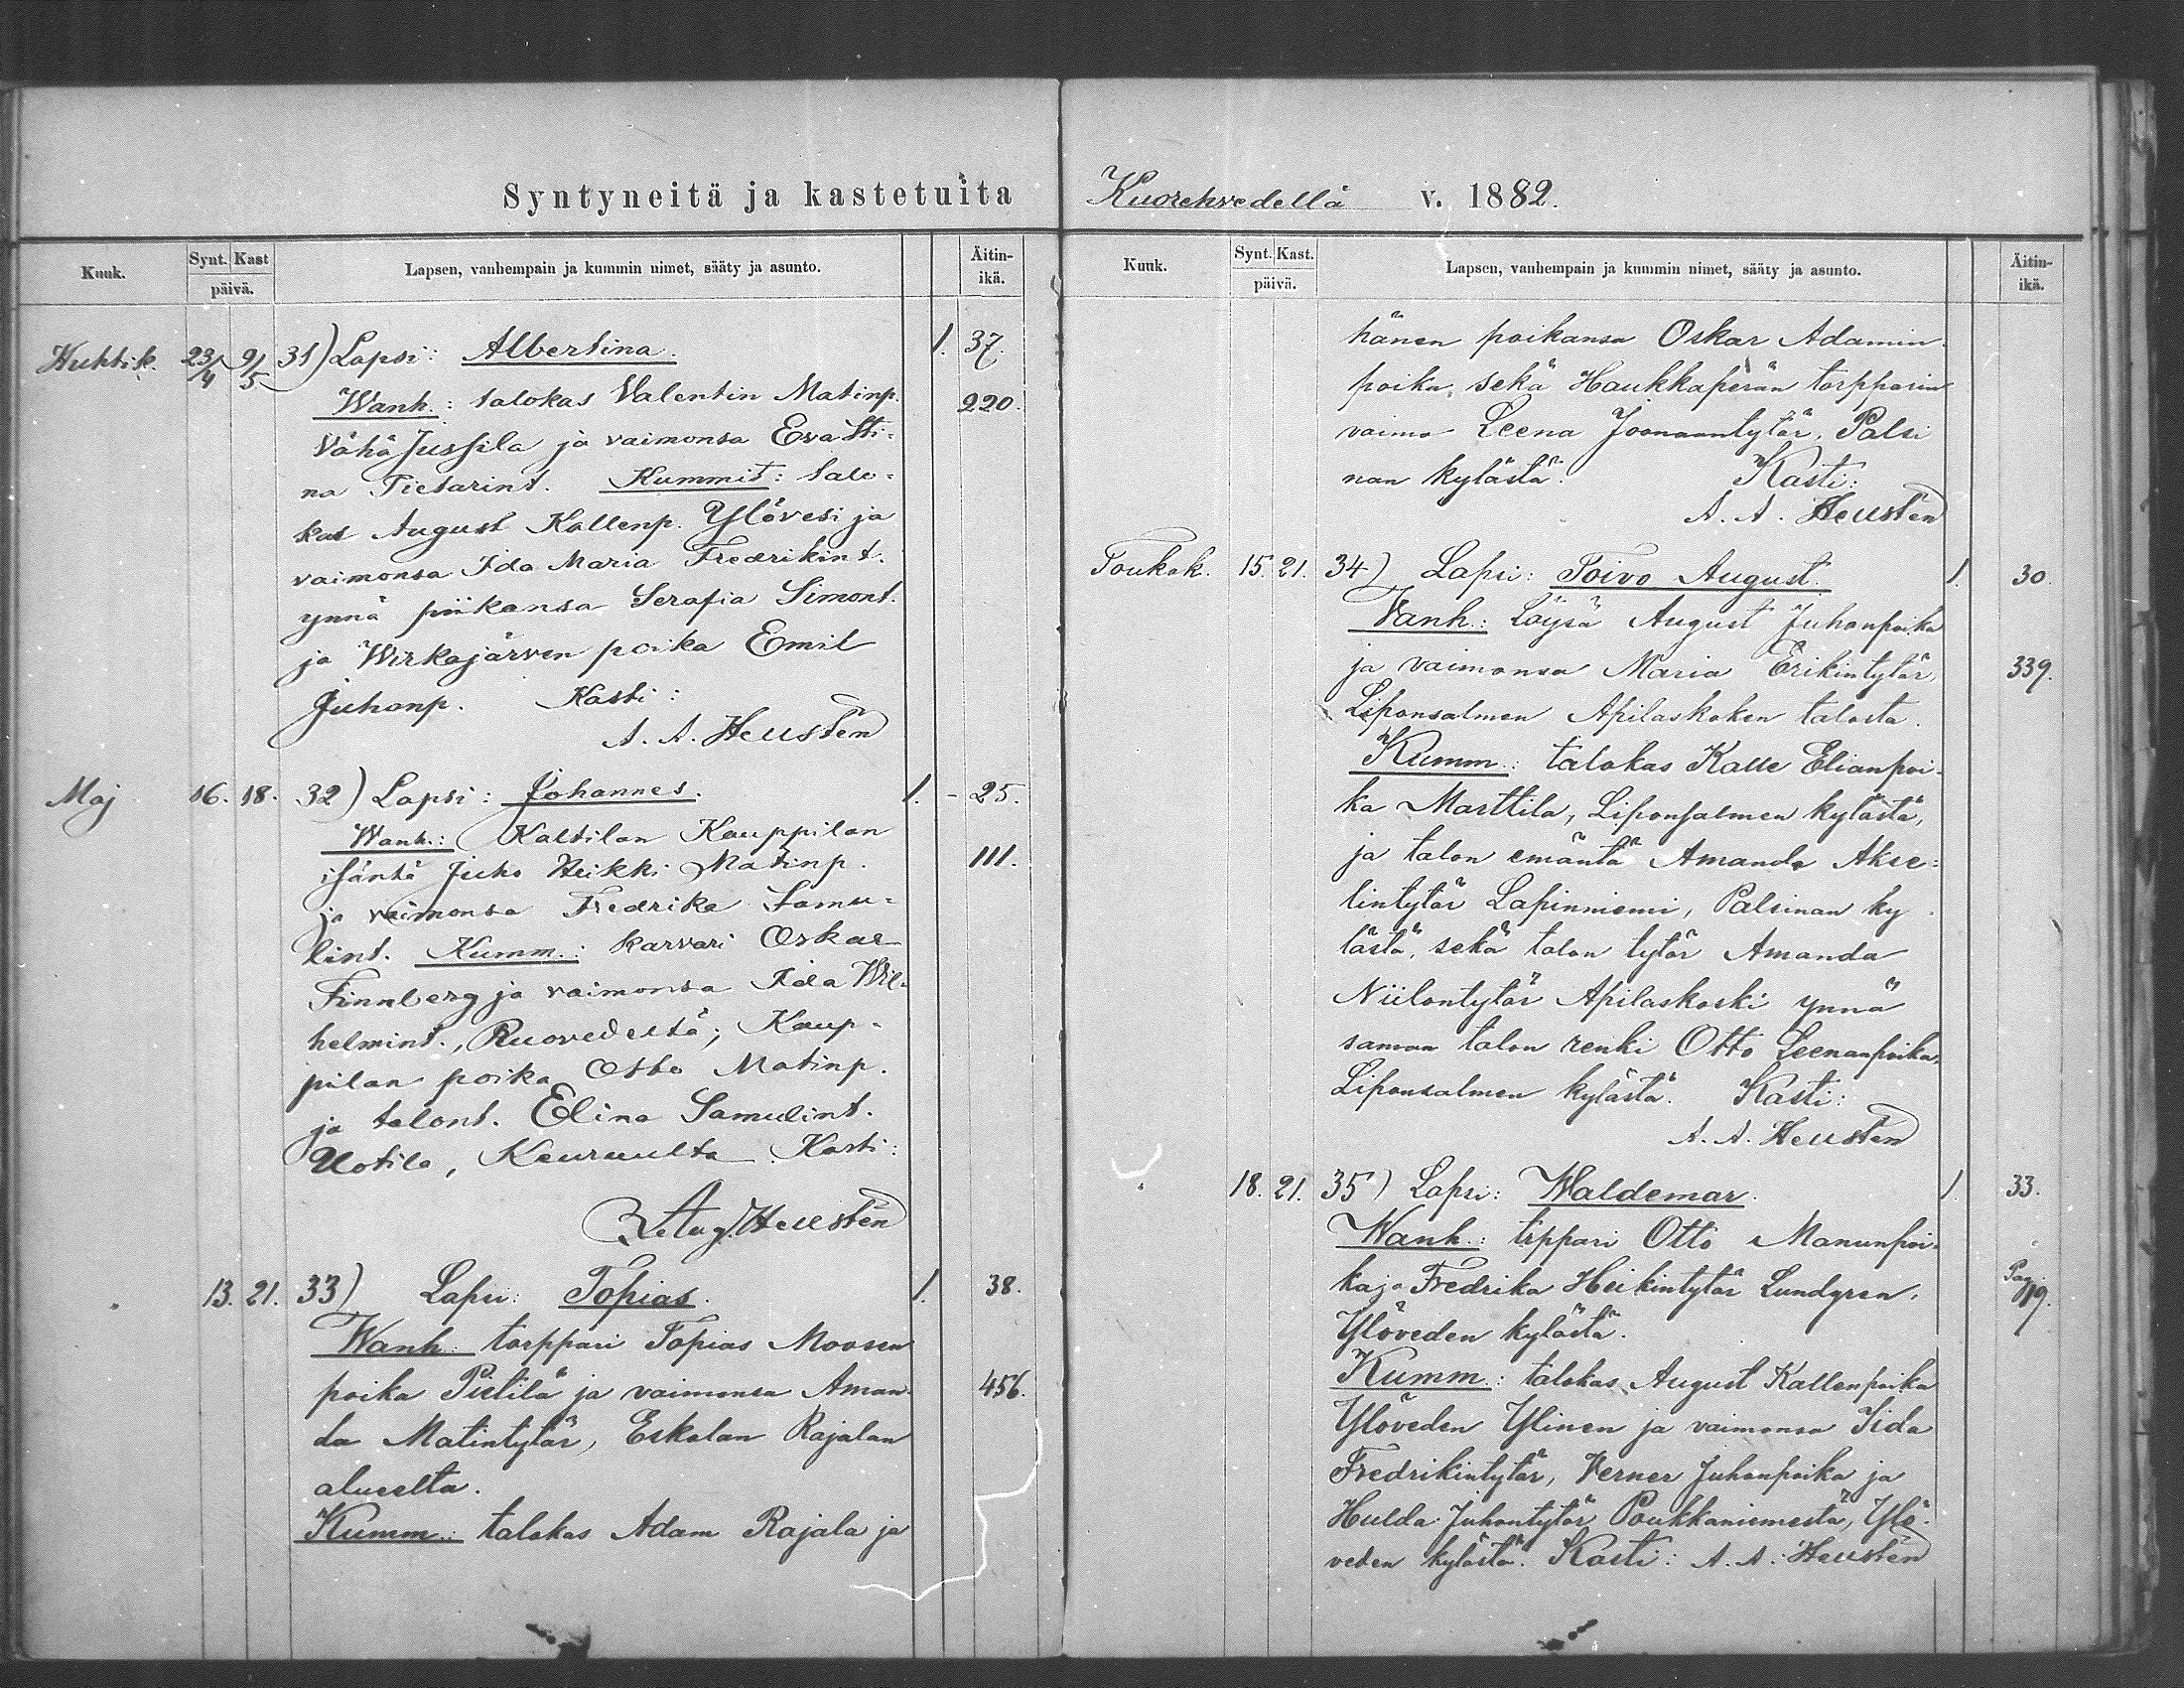 Syntyneitä ja kastetuita
Kuuk. Synt. Kast päivä. Lapsen, vanhempain ja kummin nimet, sääty ja asunto. Äitin-ikä.
Huhtik. 23/4 9/5 31) Lapsi: Albertina. 1. 37.
Wanh.: talokas Valentin Matinp. 220.
Vähä Jussila ja vaimonsa Eva Sti-
na Pietarint. Kummit: talo-
kas August Kallenp. Ylövesi ja
vaimonsa Ida Maria Fredrikint.
ynnä piikansa Serafia Simont.
ja Wirkajärven poika Emil
Juhonp. Kasti:
A. A. Heustén
Maj 16. 18. 32) Lapsi: Johannes. 1. 25.
Wanh.: Kaltilan Kauppilan
isäntä Juho Heikki Matinp. 111.
ja vaimonsa Fredrika Samu-
lint. Kumm.: karvari Oskar
Finnberg ja vaimonsa Ida Wil-
helmint., Ruovedeltä; Kaup-
pilan poika Otto Matinp.
ja talont. Elina Samulint.
Uotila, Keuruulta. Kasti:
Aug. Heustén
13. 21. 33) Lapsi: Topias. 1. 38.
Wanh: torppari Topias Moosen
poika Pietilä ja vaimonsa Aman- 456.
da Matintytär, Eskolan Rajalan
alueelta.
Kumm.: talokas Adam Rajala ja
Kuorehvedellä v. 1882.
Kuuk. Synt. Kast. päivä. Lapsen, vanhempain ja kummin nimet, sääty ja asunto. Äitin-ikä.
hänen poikansa Oskar Adamin-
poika, sekä Haukkaperän torpparin
vaimo Leena Joonaantytär, Palsi
nan kylästä. Kasti:
A. A. Heustén
Toukok. 15. 21. 34) Lapsi: Toivo August. 1. 30.
Vanh.: Löysä August Juhonpoika
ja vaimonsa Maria Erikintytär, 339.
Liponsalmen Apilaskoken talosta.
Kumm.: talokas Kalle Elianpoi-
ka Marttila, Liponsalmen kylästä,
ja talon emäntä Amanda Akse-
lintytär Lapinniemi, Palsinan ky
lästä, sekä talon tytär Amanda
Niilontytär Apilaskoski ynnä
saman talon renki Otto Leenanpoika,
Liponsalmen kylästä. Kasti:
A. A. Heustén
18. 21. 35) Lapsi: Waldemar. 1. 33.
Wanh.: torppari Otto Manunpoi-
ka ja Fredrika Heikintytär Lundgren, Pag 119.
Ylöveden kylästä.
Kumm.: talokas August Kallenpoika
Ylöveden Ylinen ja vaimonsa Iida
Fredrikintytär, Verner Juhonpoika ja
Hulda Juhontytär Poukkaniemestä, Ylö-
veden kylästä. Kasti: A. A. Heustén